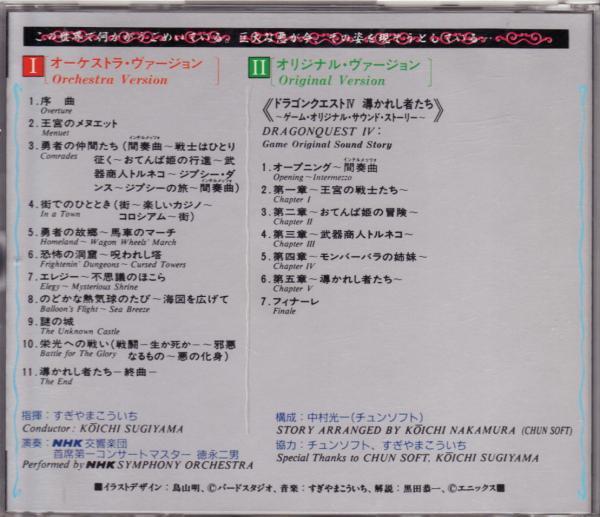 この世界で何かがうごめいている。 巨大な悪が今、その姿を現そうとしている…
I オーケストラ・ヴァージョン
Orchestra Version
1.序 曲
Overture
2.王宮のメヌエット
Menuet
3.勇者の仲間たち(間奏曲～戦士はひとり
インテルメッツォ
Comrades
征く～おてんば姫の行進～武
器商人トルネコ～ジプシー・ダ
ンス～ジプシーの旅～間奏曲)
インテルメッツォ
4.街でのひととき(街～楽しいカジノ～
In a Town
コロシアム～街)
5.勇者の故郷～馬車のマーチ
Homeland～Wagon Wheels' March
6.恐怖の洞窟～呪われし塔
Frightenin' Dungeons～Cursed Towers
7.エレジー～不思議のほこら
Elegy～Mysterious Shrine
8.のどかな熱気球のたび～海図を広げて
Balloon's Flight～Sea Breeze
9.謎の城
The Unknown Castle
10.栄光への戦い(戦闘－生か死か－～邪悪
Battle for The Glory
なるもの～悪の化身)
11.導かれし者たち－終曲－
The End
指揮:すぎやまこういち
Conductor: KŌICHI SUGIYAMA
演奏:NHK交響楽団
首席第一コンサートマスター 徳永二男
Performed by NHK SYMPHONY ORCHESTRA
II オリジナル・ヴァージョン
Original Version
《ドラゴンクエストIV 導かれし者たち
～ゲーム・オリジナル・サウンド・ストーリー～》
DRAGONQUEST IV:
Game Original Sound Story
1.オープニング～間奏曲
インテルメッツォ
Opening～Intermezzo
2.第一章～王宮の戦士たち～
Chapter I
3.第二章～おてんば姫の冒険～
Chapter II
4.第三章～武器商人トルネコ～
Chapter III
5.第四章～モンバーバラの姉妹～
Chapter IV
6.第五章～導かれし者たち～
Chapter V
7.フィナーレ
Finale
構成:中村光一(チュンソフト)
STORY ARRANGED BY KŌICHI NAKAMURA (CHUN SOFT)
協力:チュンソフト、すぎやまこういち
Special Thanks to CHUN SOFT, KŌICHI SUGIYAMA
■イラストデザイン:鳥山明、Ⓒバードスタジオ、音楽:すぎやまこういち、解説:黒田恭一、Ⓒエニックス■